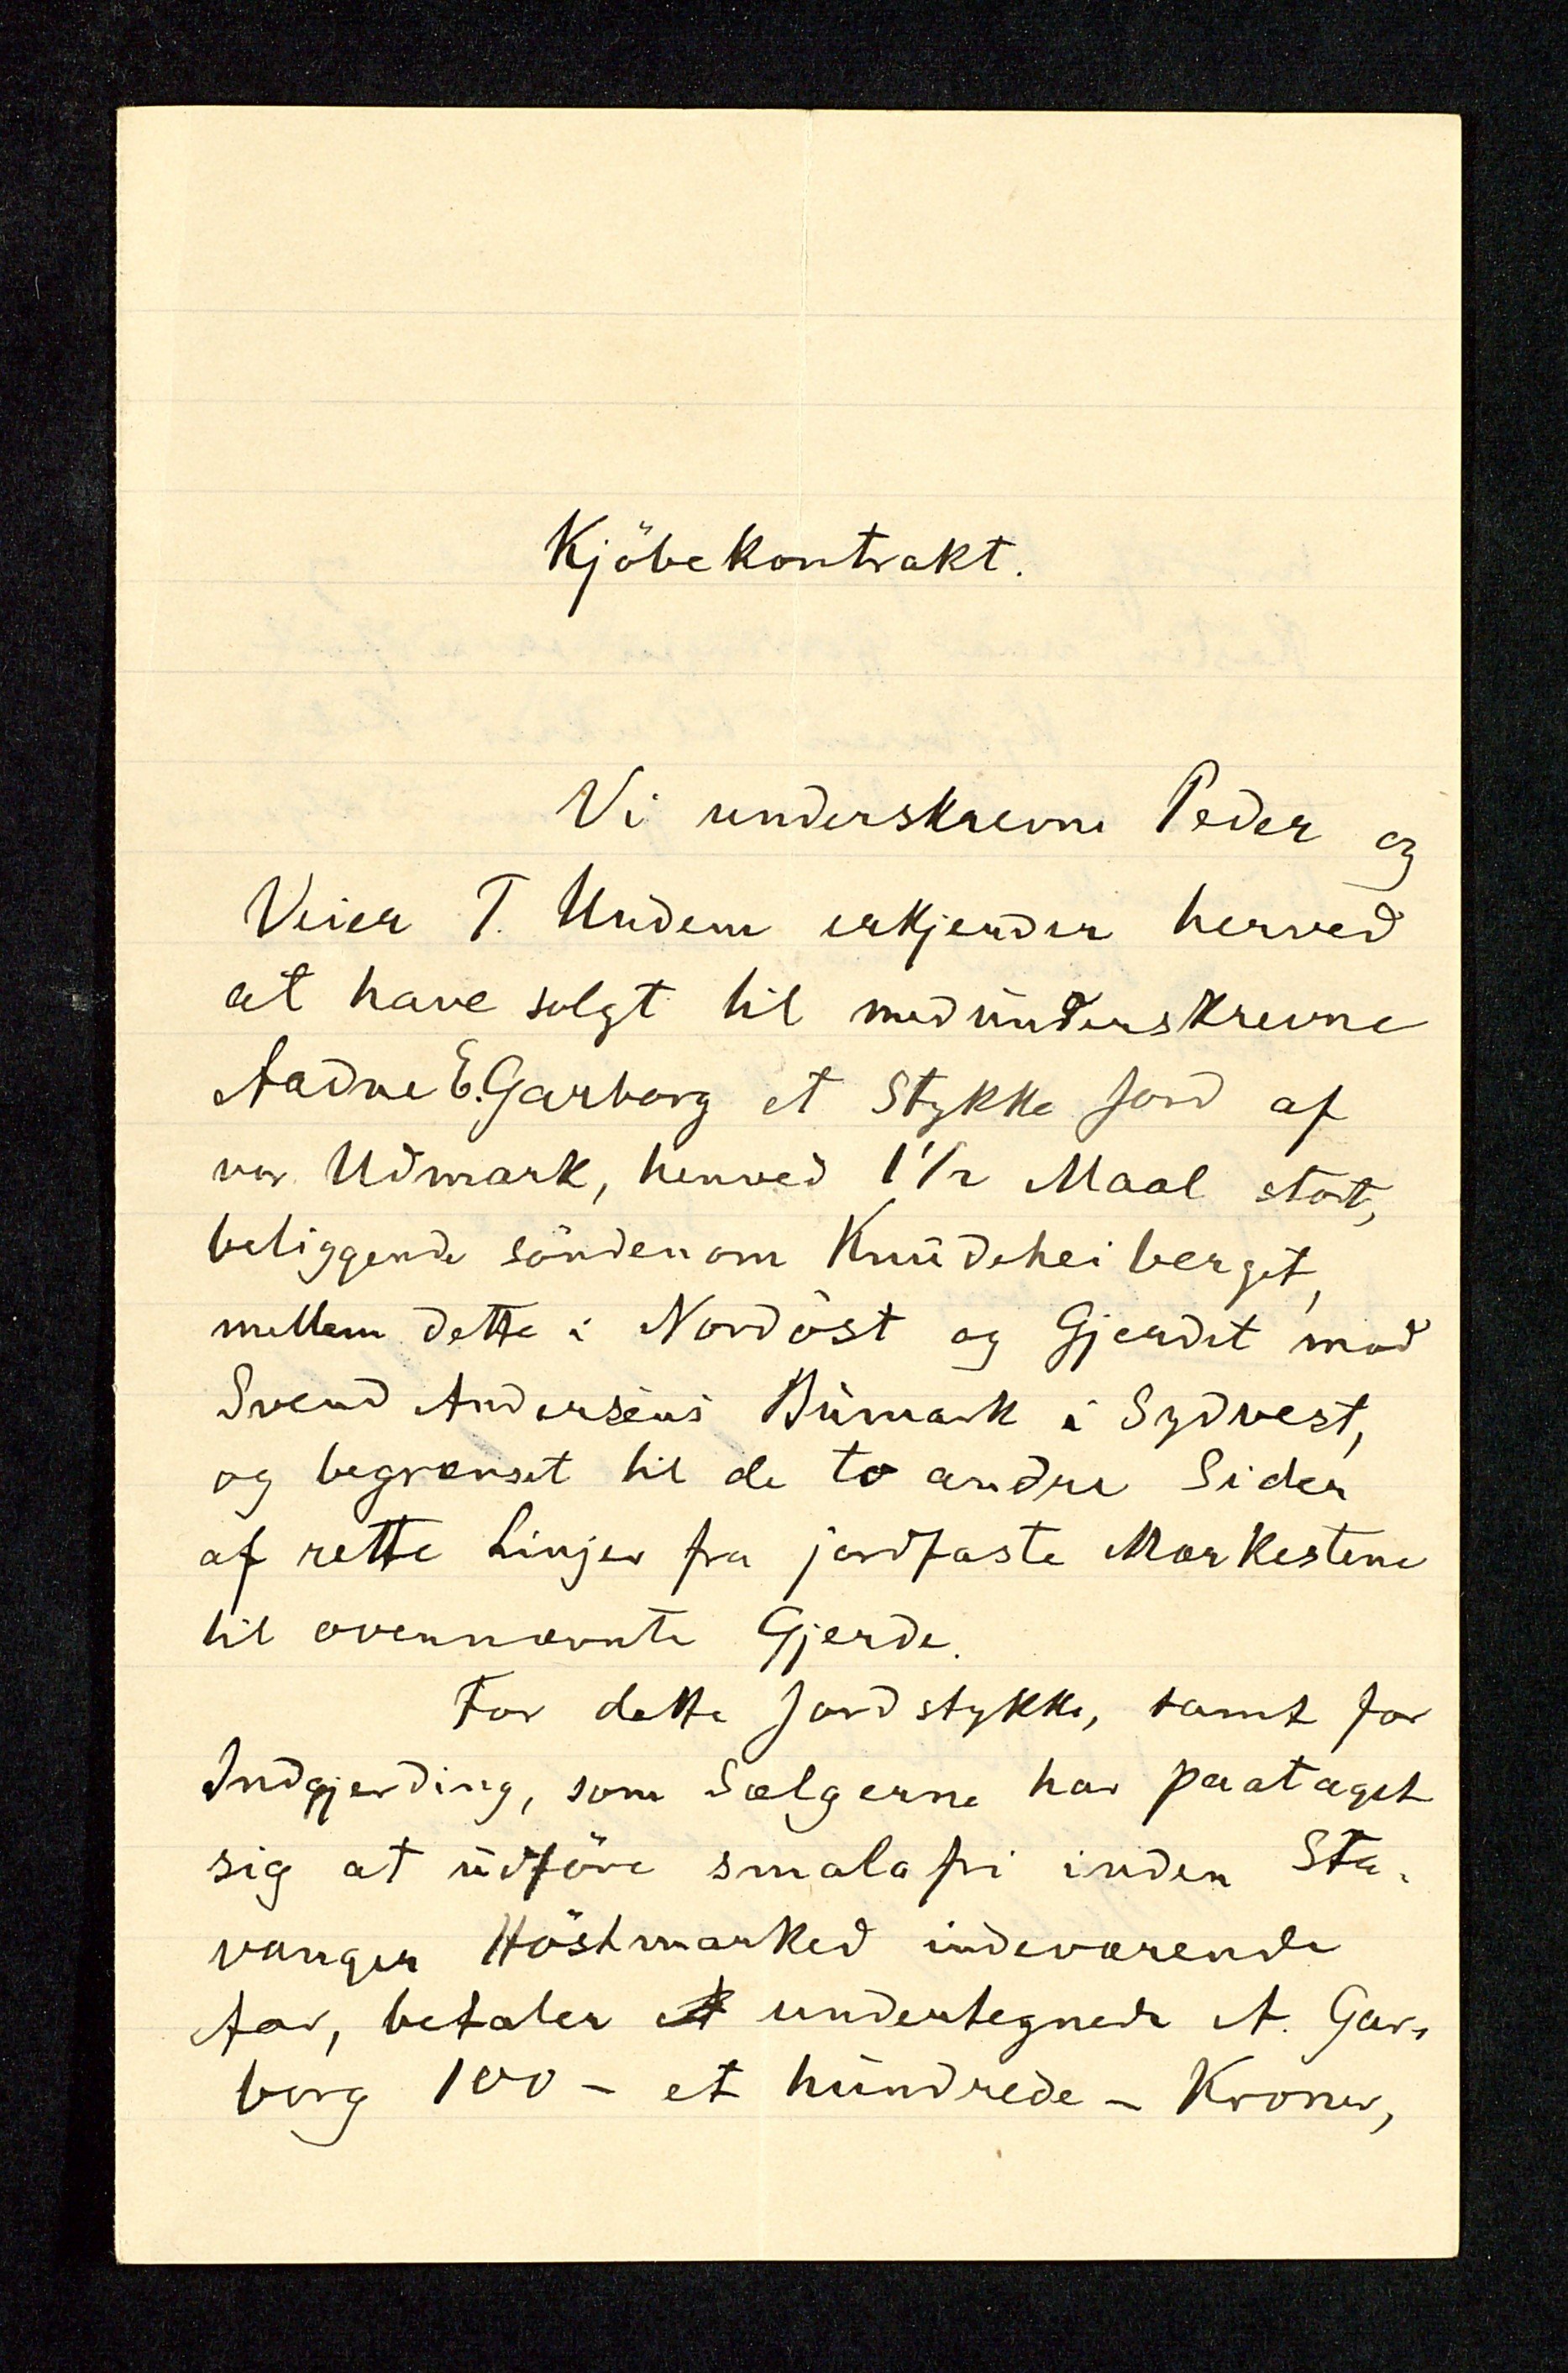 Kjöbekontrakt.
Vi underskrevne Peder og
Veier T. Undem erkjender herved
at have solgt til medünderskrevne
Aadne E. Garborg et Stykke Jord af
vor Udmark, henved 1 1/2 Maal stort,
beliggende söndenom Knüdeheiberget,
mellem dette i Nordöst og Gjerdet mod
Svend Andersens Bümark i Sydvest,
og begrænset til de to andre Sider
af rette Linjer fra jordfaste Mærkestene
til ovennævnte Gjerde.
For dette Jordstykke, samt for
Indgjerding, som Sælgerne har paataget
sig at üdföre smalafri inden Sta-
vanger Höstmarked indeværende
Aar, betaler undertegnede A. Gar-
borg 100 - et hündrede - Kroner,